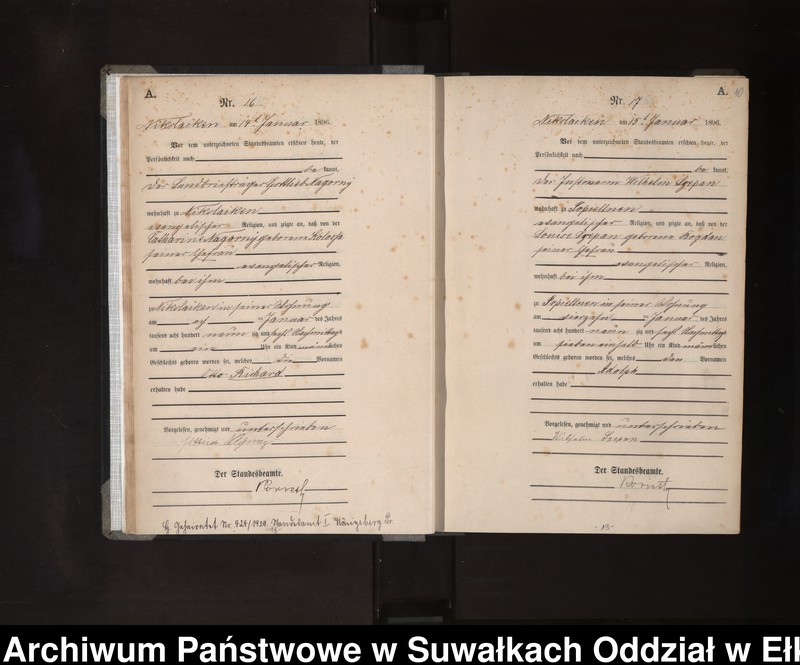 A.
Nr. 16
Nikolaiken am 14t Januar 1896.
Vor dem unterzeichneten Standesbeamten erschien heute, der
Persönlichkeit nach
be kannt,
der Landbriefträger Gottlieb Nagorny
wohnhaft zu Nikolaiken
evangelischer Religion, und zeigte an, daß von der
Catharine Nagorny geborenen
seiner Ehefrau
evangelischer Religion,
wohnhaft bei ihm
zu Nikolaiken in seiner Wohnung
am Januar des Jahres
tausend acht hundert neun zig und sechs Nachmittags
um Uhr ein Kind männlichen
Geschlechts geboren worden sei, welches die Vornamen
Otto Richard
erhalten habe
Vorgelesen, genehmigt und unterschrieben
Der Standesbeamte.
H. Geheiratet Nr. 929/1920 Standesamt I Königsberg Pr.
A. 10
Nr. 17
Nikolaiken am 15t Januar 1896.
Vor dem unterzeichneten Standesbeamten erschien heute, der
Persönlichkeit nach
be kannt,
der Instmann Wilhelm
wohnhaft zu
evangelischer Religion, und zeigte an, daß von der
Louise geborenen Bogdan
seiner Ehefrau
evangelischer Religion,
wohnhaft bei ihm
zu in seiner Wohnung
am vierzehn ten Januar des Jahres
tausend acht hundert neun zig und sechs Nachmittags
um sieben einhalb Uhr ein Kind männlichen
Geschlechts geboren worden sei, welches den Vornamen
Adolph
erhalten habe
Vorgelesen, genehmigt und unterschrieben
Wilhelm
Der Standesbeamte.
Archiwum Państwowe w Suwałkach Oddział w Ełk